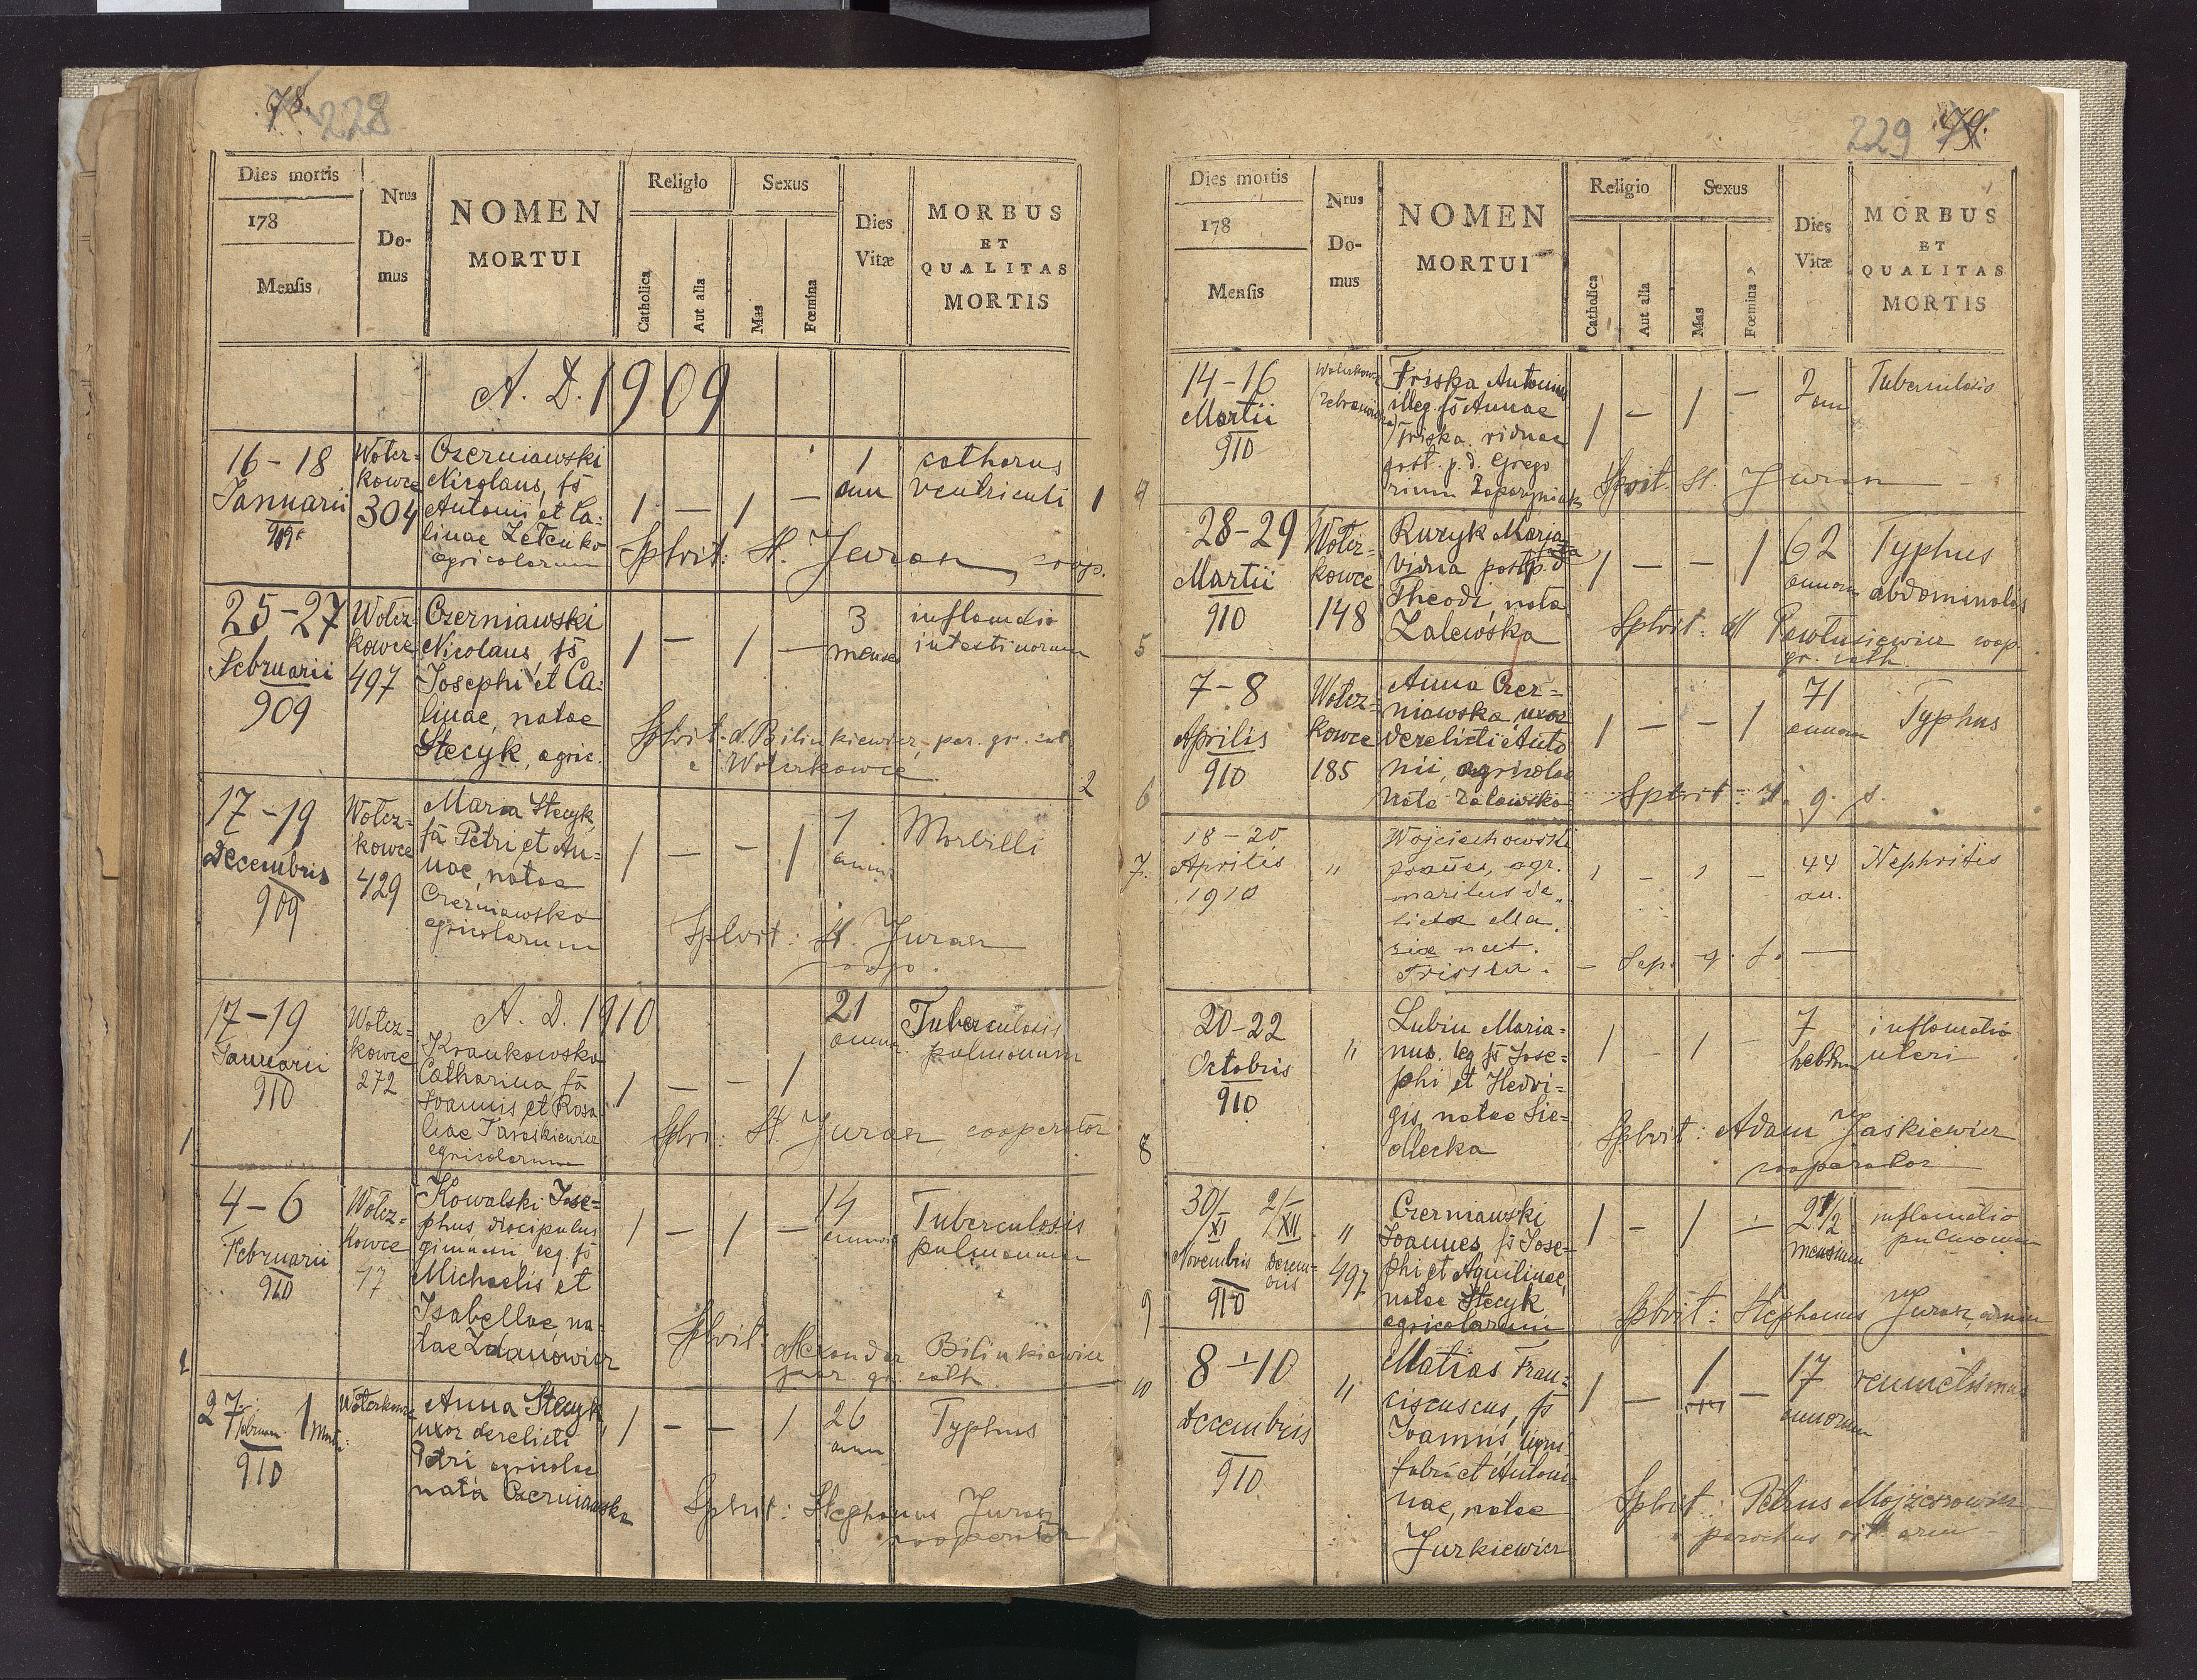 78. 228
Dies mortis
178
Mensis
Nrus
Do-
mus
NOMEN
MORTUI
Religio
Catholica
Aut alia
Sexus
Mas
Fœmina
Dies
Vitæ
MORBUS
ET
QUALITAS
MORTIS
A. D. 1909
16-18
Januarii
909
Wołcz-
kowce
304
Czerniawski
Nicolaus, fs
Antonii et Ca-
linae
agricolarum
1 — 1 —
1
ann
catharus
ventriculi
1
Splvit: St. Juras, coop.
25-27
Februarii
909
Wołcz-
kowce
497
Czerniawski
Nicolaus, fs
Josephi et Ca-
linae, natae
Stecyk, agric.
1 — 1 —
3
menses
inflamatio
intestinorum
Splvit: d. Bilinkiewicz, par. gr. cat.
Wołczkowce
2
17-19
Decembris
909
Wołcz-
kowce
429
Maria Stecyk,
fa Petri et An-
nae, natae
Czerniawska
agricolarum
1 — — 1
1
anni
Morbilli
Splvit: St. Juras
coop.
A. D. 1910
17-19
Januarii
910
Wołcz-
kowce
272
Krankowska
Catharina, fa
Joannis et Rosa
liae Taraskiewicz
agricolarum
1 — — 1
21
annor.
Tuberculosis
pulmonum
Splvi: St. Juras cooperator
1
4-6
Februarii
910
Wołcz-
kowce
17
Kowalski Jose-
phus, discipulus
gimnasii leg. fs
Michaelis et
Isabellae, na-
tae Zdanowicz
1 — 1 —
14
annor
Tuberculosis
pulmonum
Splvit: Alexander Bilinkiewicz
par. gr. cath.
2
27 Februar. 1 Mart.
910
Wołczkowce
Anna Stecyk,
uxor derelicti
Petri agricolae
nata Czerniawska
1 — — 1
26
ann
Typhus
Splvit: Stephanus Juras
cooperator
229 79.
Dies mortis
178
Mensis
Nrus
Do-
mus
NOMEN
MORTUI
Religio
Catholica
Aut alia
Sexus
Mas
Fœmina
Dies
Vitæ
MORBUS
ET
QUALITAS
MORTIS
14-16
Martii
910
Wołczkowce
Triska Antonius
illeg. fs Annae
Triska viduae
post. p. d. Grego
rium Zaparyniuk
1 — 1 —
2
ann
Tuberculosis
Splvit. St. Juras
4
28-29
Martii
910
Wołcz-
kowce
148
Ruzyk Maria
vidua post p. d
Theodi, nata
Zalewska
1 — — 1
62
annorum
Typhus
abdominalis
Splvit: Pawlusiewicz coop.
gr. cath.
5
7-8
Aprilis
910
Wołcz-
kowce
185
Anna Czer-
niawska, uxor
derelicti Anto
nii, agricolae
nata Zalewska
1 — — 1
71
annorum
Typhus
Splvit: St. g. J.
6
7.
18-20
Aprilis
1910
"
Wojciechowski
agr.
maritus de-
licta Ma
riae nat.
Triska.
1 — 1 —
44
an.
Nephritis
— Sep. g. J. —
20-22
Octobris
910
"
Lubin Maria-
nus. leg fs Jose-
phi et Hedvi-
gis, natae Sie-
dlecka
1 — 1 —
7
hebdm
inflamatio
uteri
Splvit: Adam Jaśkiewicz
cooperator
8
30/XI 2/XII
Novembris Decem-
bris
910
"
497
Czerniawski
Joannes, fs Jose-
phi et Aquilinae,
natae Stecyk
agricolarum
1 — 1 —
2 1/2
mensium
inflamatio
pulmonum
Splvit: Stephanus Juras,
9
8-10
Decembris
910
"
Matias Fran-
ciscuscus, fs
Joannis, ligni-
fabri et Antoni-
nae, natae
Jurkiewicz
1 — 1 —
17
annorum
reumatismus
Splvit: Petrus Mojżeszowicz
parochus rit. arm
10